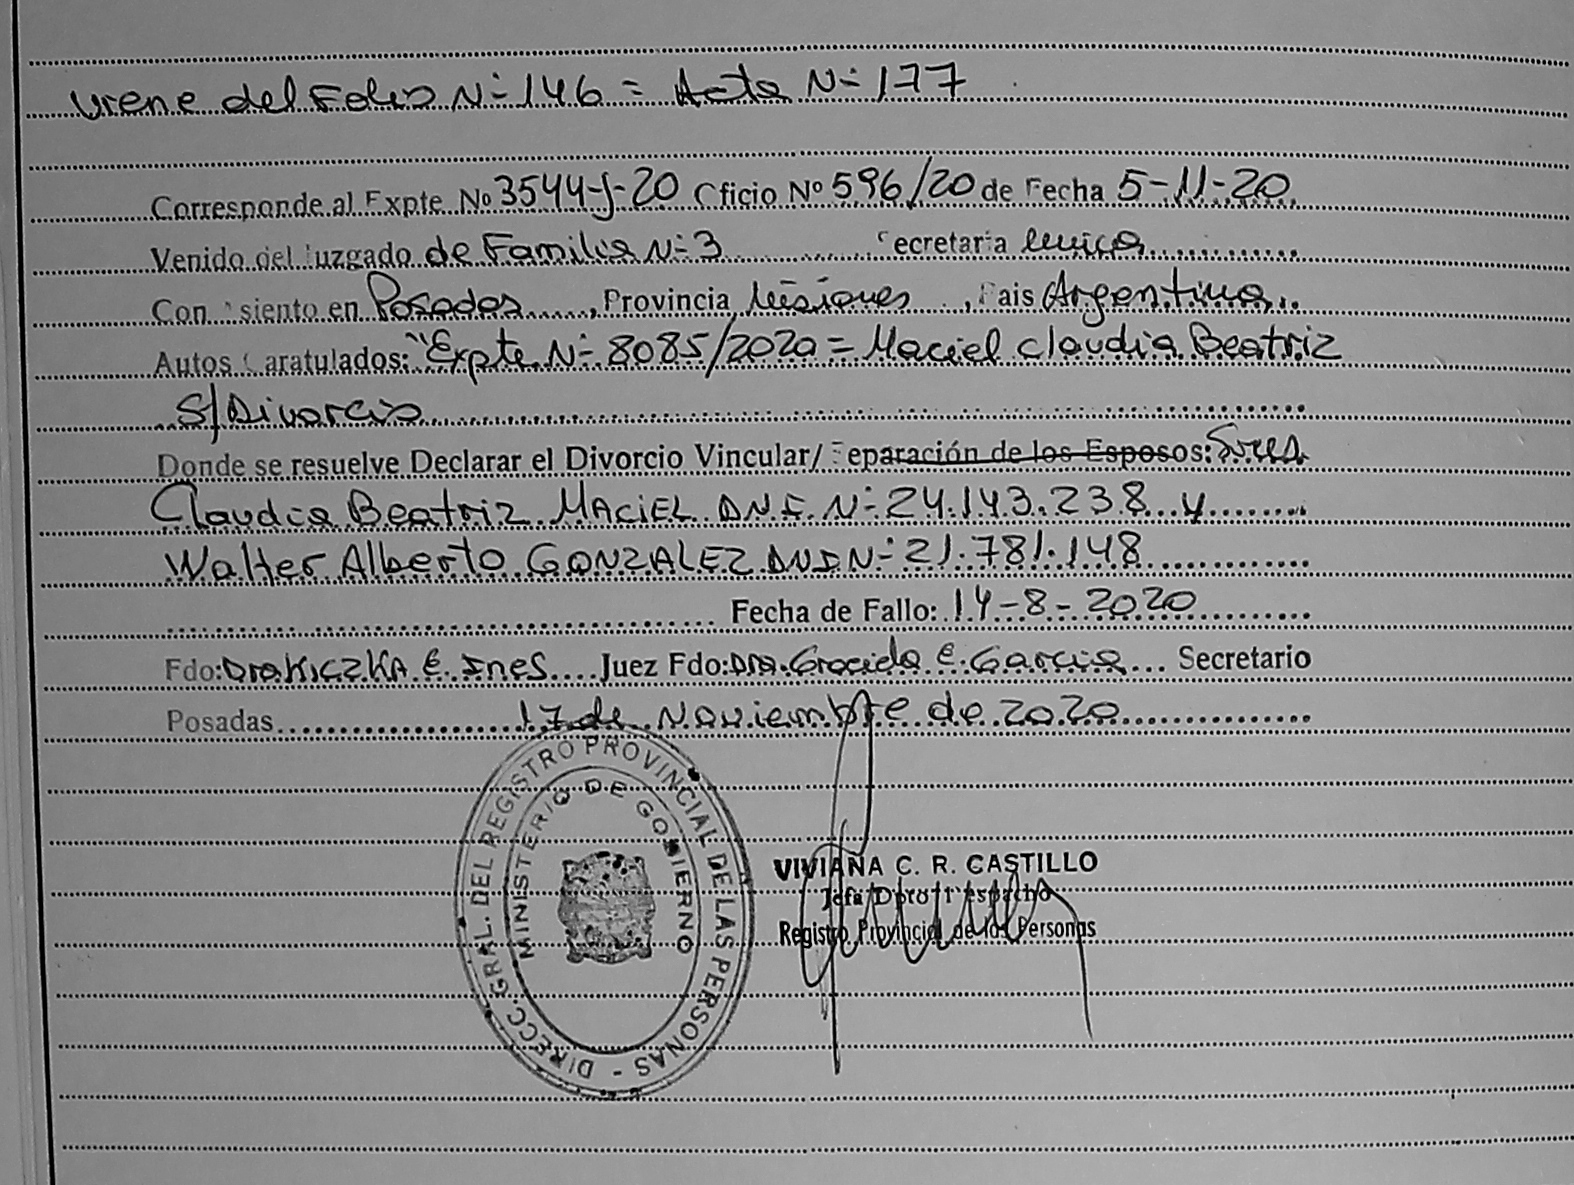 Viene del Folio N= 146 = Acta N= 177
Corresponde al Expte No 3544-J-20 Oficio Nº 596/20 de Fecha 5-11-20
Venido del Juzgado de Familia N= 3 Secretaria Unica
Con asiento en Posadas, Provincia Misiones, Pais Argentina
Autos Caratulados: "Expte N= 8085/2020 = Maciel Claudia Beatriz
S/Divorcio
Donde se resuelve Declarar el Divorcio Vincular/ Separación de los Esposos: Sres
Claudia Beatriz MACIEL DNI N= 24.143.238 y
Walter Alberto GONZALEZ DNI N= 21.781.148
Fecha de Fallo: 14-8-2020
Fdo: Dra KICZKA E. Ines Juez Fdo: Dra. Graciela E. Garcia Secretario
Posadas 17 de Noviembre de 2020
DIRECC. GRAL. DEL REGISTRO PROVINCIAL DE LAS PERSONAS -
MINISTERIO DE GOBIERNO
VIVIANA C. R. CASTILLO
Jefa Dpto Despacho
Registro Provincial de las Personas